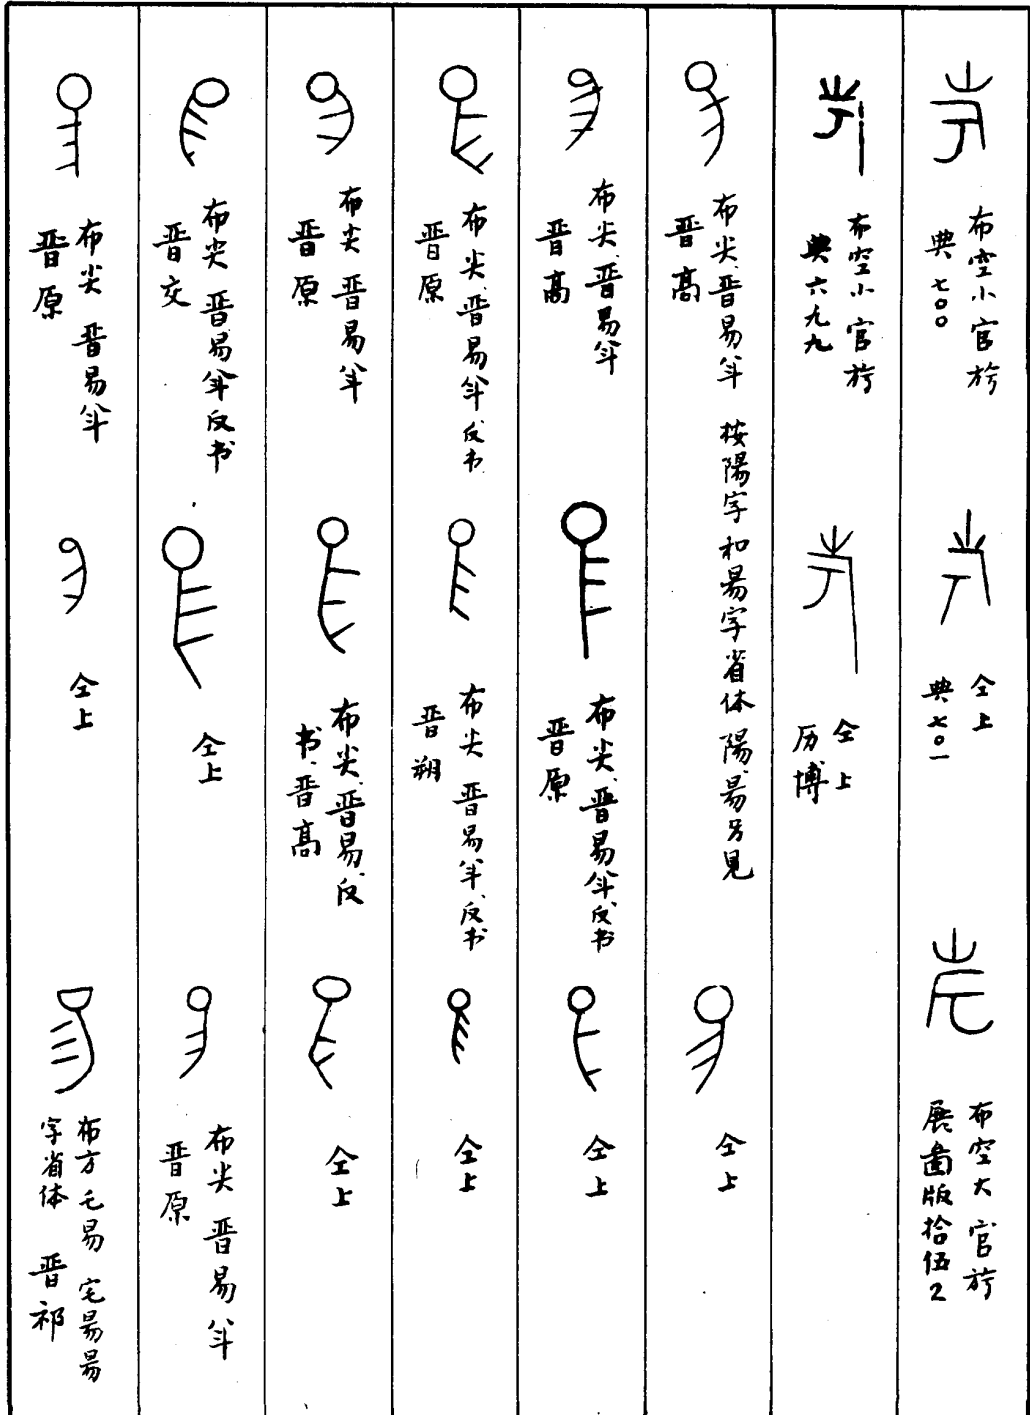 布空小 官㝬
典七〇〇
仝上
典七〇一
布空大 官㝬
展啚版拾伍2
布空小 官㝬
典六九九
仝上
历博
布尖、晋昜釿 按陽字和昜字省体 陽、昜另見
晋高
仝上
布尖、晋昜釿
晋高
布尖、晋昜釿、反书
晋原
仝上
布尖、晋昜釿、反书
晋原
布尖 晋昜釿、反书
晋朔
仝上
布尖 晋昜釿
晋原
布尖、晋昜、反
书、晋高
仝上
布尖 晋昜釿反书
晋交
仝上
布尖 晋昜釿
晋原
布尖 晋昜釿
晋原
仝上
布方 乇昜 宅昜昜
字省体 晋祁